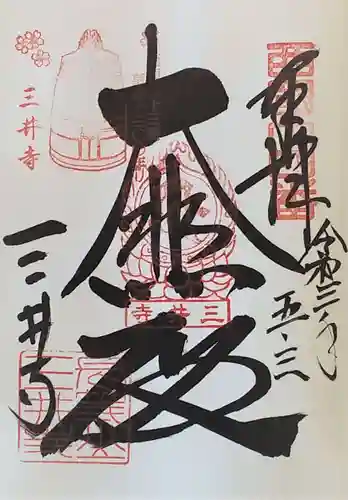 奉拝
令和三年
五・三
大悲殿
三井寺
三井寺
三井寺